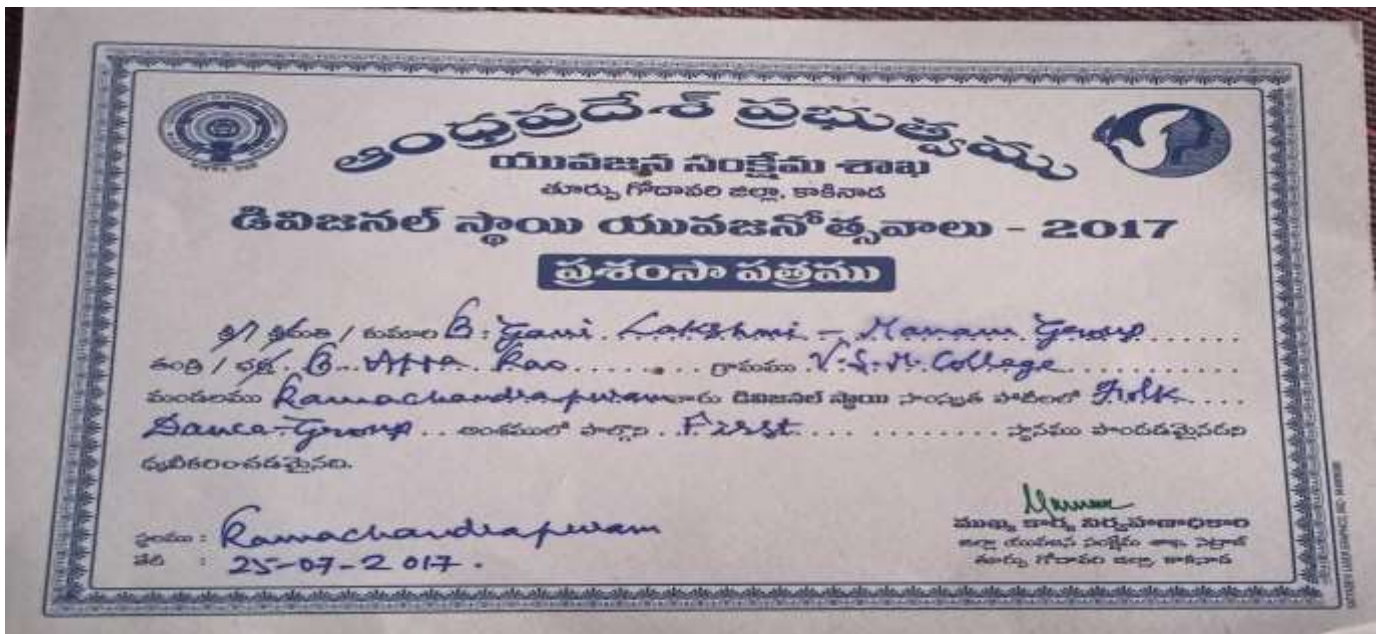 ఆంధ్రప్రదేశ్ ప్రభుత్వమ్ము
యువజన సంక్షేమ శాఖ
తూర్పు గోదావరి జిల్లా, కాకినాడ
డివిజనల్ స్థాయి యువజనోత్సవాలు - 2017
ప్రశంసా పత్రము
శ్రీ/ శ్రీమతి / కుమారి B. Gani Lakshmi - Manam Group
తండ్రి / భర్త B. Appa Rao గ్రామము V.S.M. College
మండలము Ramachandrapuram వారు డివిజనల్ స్థాయి సాంస్కృత పోటీలలో Folk
Dance-Group అంశములో పాల్గొని First స్థానము పొందడమైనదని
ధృవీకరించడమైనది.
స్థలము : Ramachandrapuram
తేది : 25-07-2017.
ముఖ్య కార్య నిర్వహణాధికారి
జిల్లా యువజన సంక్షేమ శాఖ, సెట్రాజ్
తూర్పు గోదావరి జిల్లా, కాకినాడ